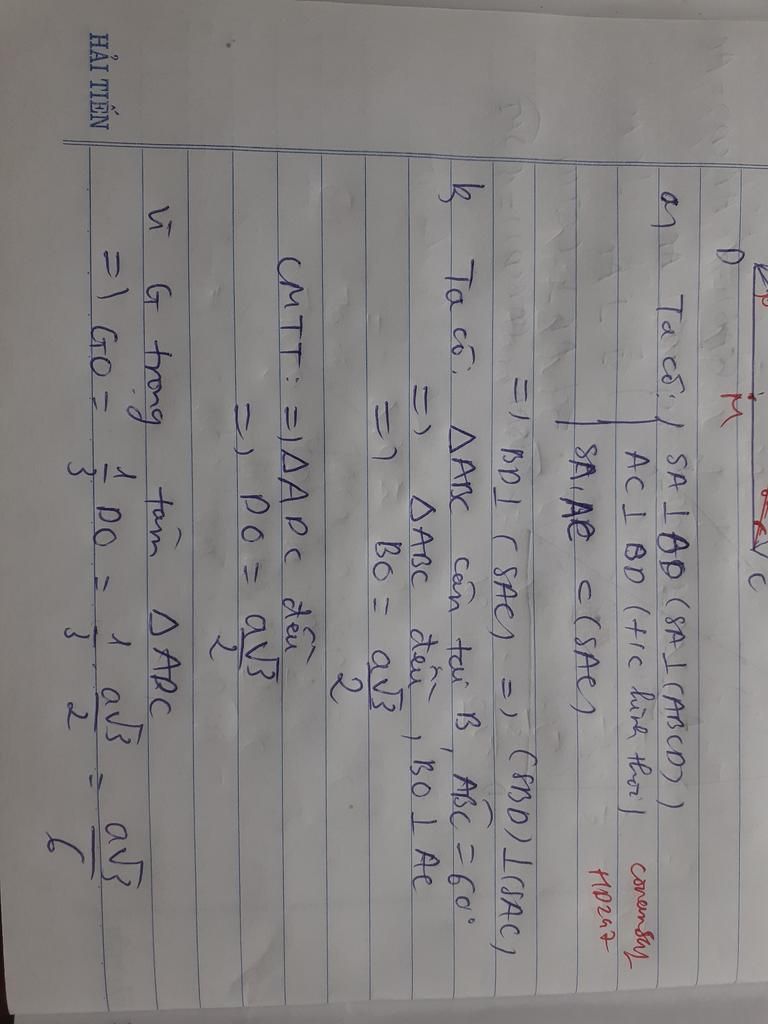 D
M
C
a, Ta có: SA ⊥ BD (SA ⊥ (ABCD))
AC ⊥ BD (t/c hình thoi)
SA, AC ⊂ (SAC)
=) BD ⊥ (SAC) =) (SBD) ⊥ (SAC)
b, Ta có: ΔABC cân tại B, ABC = 60°
=) ΔABC đều, BO ⊥ AC
=) BO = a√3/2
CMTT: =) ΔADC đều
=) DO = a√3/2
Vì G trọng tâm ΔADC
=) GO = 1/3 DO = 1/3 . a√3/2 = a√3/6
HẢI TIẾN